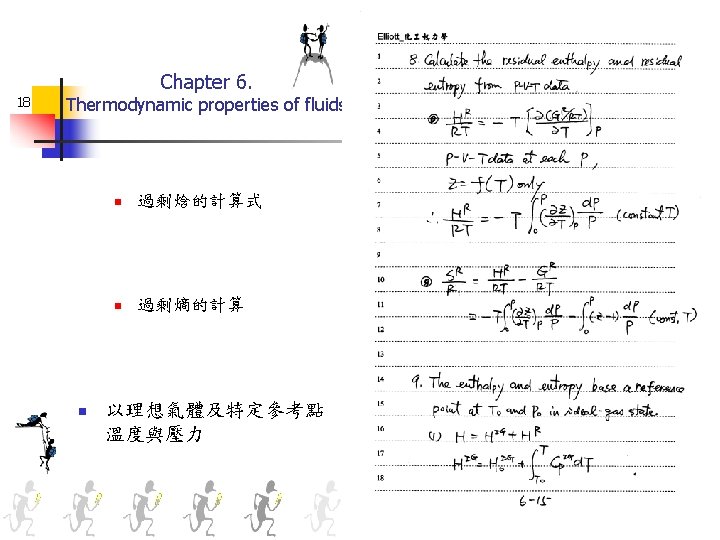 18
Chapter 6.
Thermodynamic properties of fluids
過剩焓的計算式
過剩熵的計算
以理想氣體及特定參考點
溫度與壓力
Elliott_化工熱力學
1 8. Calculate the residual enthalpy and residual
2 entropy from P-V-T data
3 ⓐ H^R/RT = -T [∂(G^R/RT)/∂T]_P
4
5 P-V-T data at each P,
6 Z = f(T) only
7 ∴ H^R/RT = -T ∫_0^P (∂Z/∂T)_P dP/P (constant T)
8
9
10 ⓑ S^R/R = H^R/RT - G^R/RT
11 = -T ∫_0^P (∂Z/∂T)_P dP/P - ∫_0^P (Z-1) dP/P (const. T)
12
13
14 9. The enthalpy and entropy base a reference
15 point at T_0 and P_0 in ideal gas state.
16 (1) H = H^IG + H^R
17 H^IG = H_0^IG + ∫_{T_0}^T C_P^IG dT
18
6-15